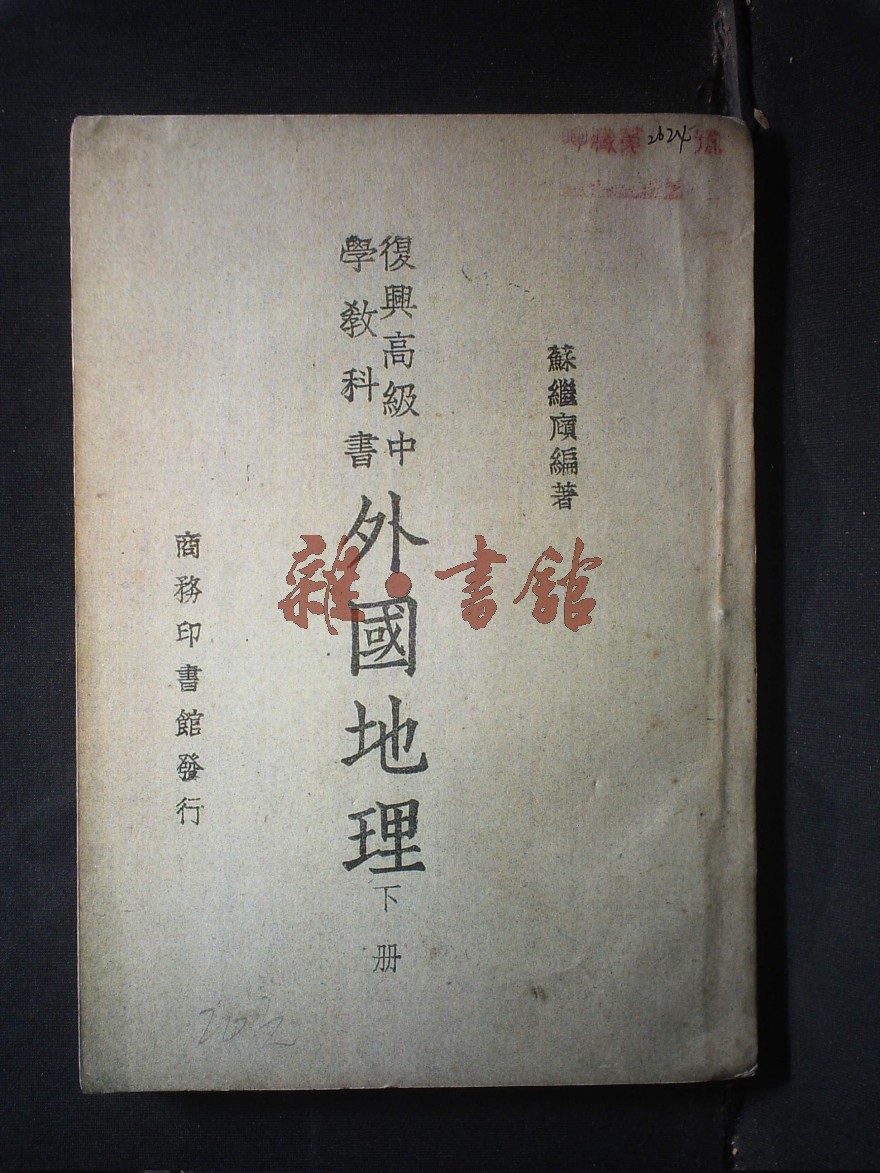 蘇繼廎編著
復興高級中
學教科書
外國地理
下册
商務印書館發行
雜·書館
2624
202